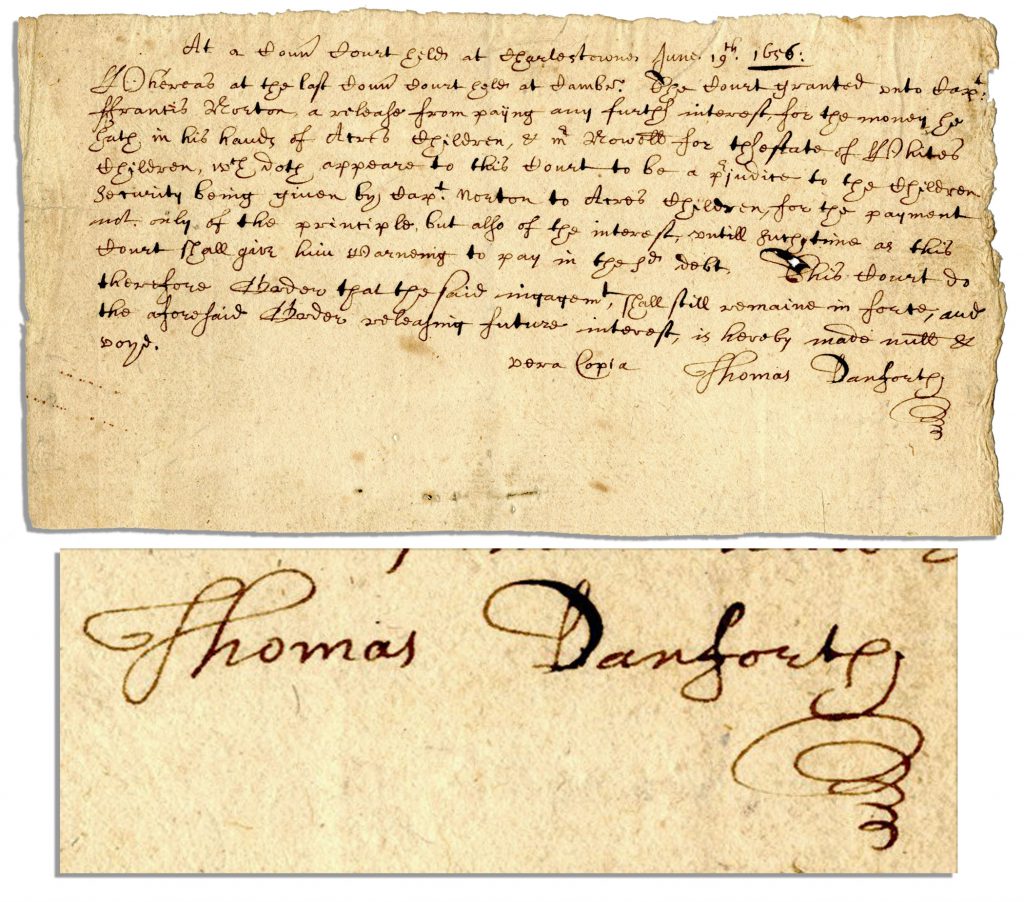 At a Coun̄ Court held at Charlestowne June 19th. 1656:
Whereas at the last Coun̄ Court held at Cambr. The Court granted vnto Capt.
ffrancis Norton, a release from paying any furthr interest, for the money he
hath in his hands of Acres Children, & mr Nowell for thestate of Whites
Children, wch doth appeare to this Court to be a pṟjudice to the Children
Security being given by Capt. Norton to Acres Children, for the payment
not only of the principle, but also of the interest, vntill such time as this
Court shall give him warneing to pay in the sd debt. This Court do
therefore Order that the said ingagemt, shall still remaine in force, and
the aforesaid Order releasing future interest, is hereby made null &
voyd.
vera Copia Thomas Danforth
Thomas Danforth